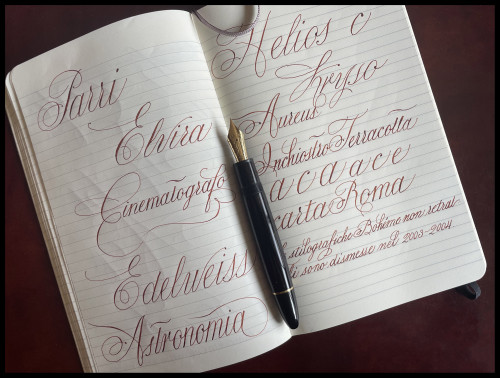 Parri
Elvira
Cinematografo
Edelweiss
Astronomia
Helios c
Aureus
Inchiostro Terracotta
a c a a c e
carta Roma
stilografiche Bohème non retrat
sono dismesse nel 2003-2004.